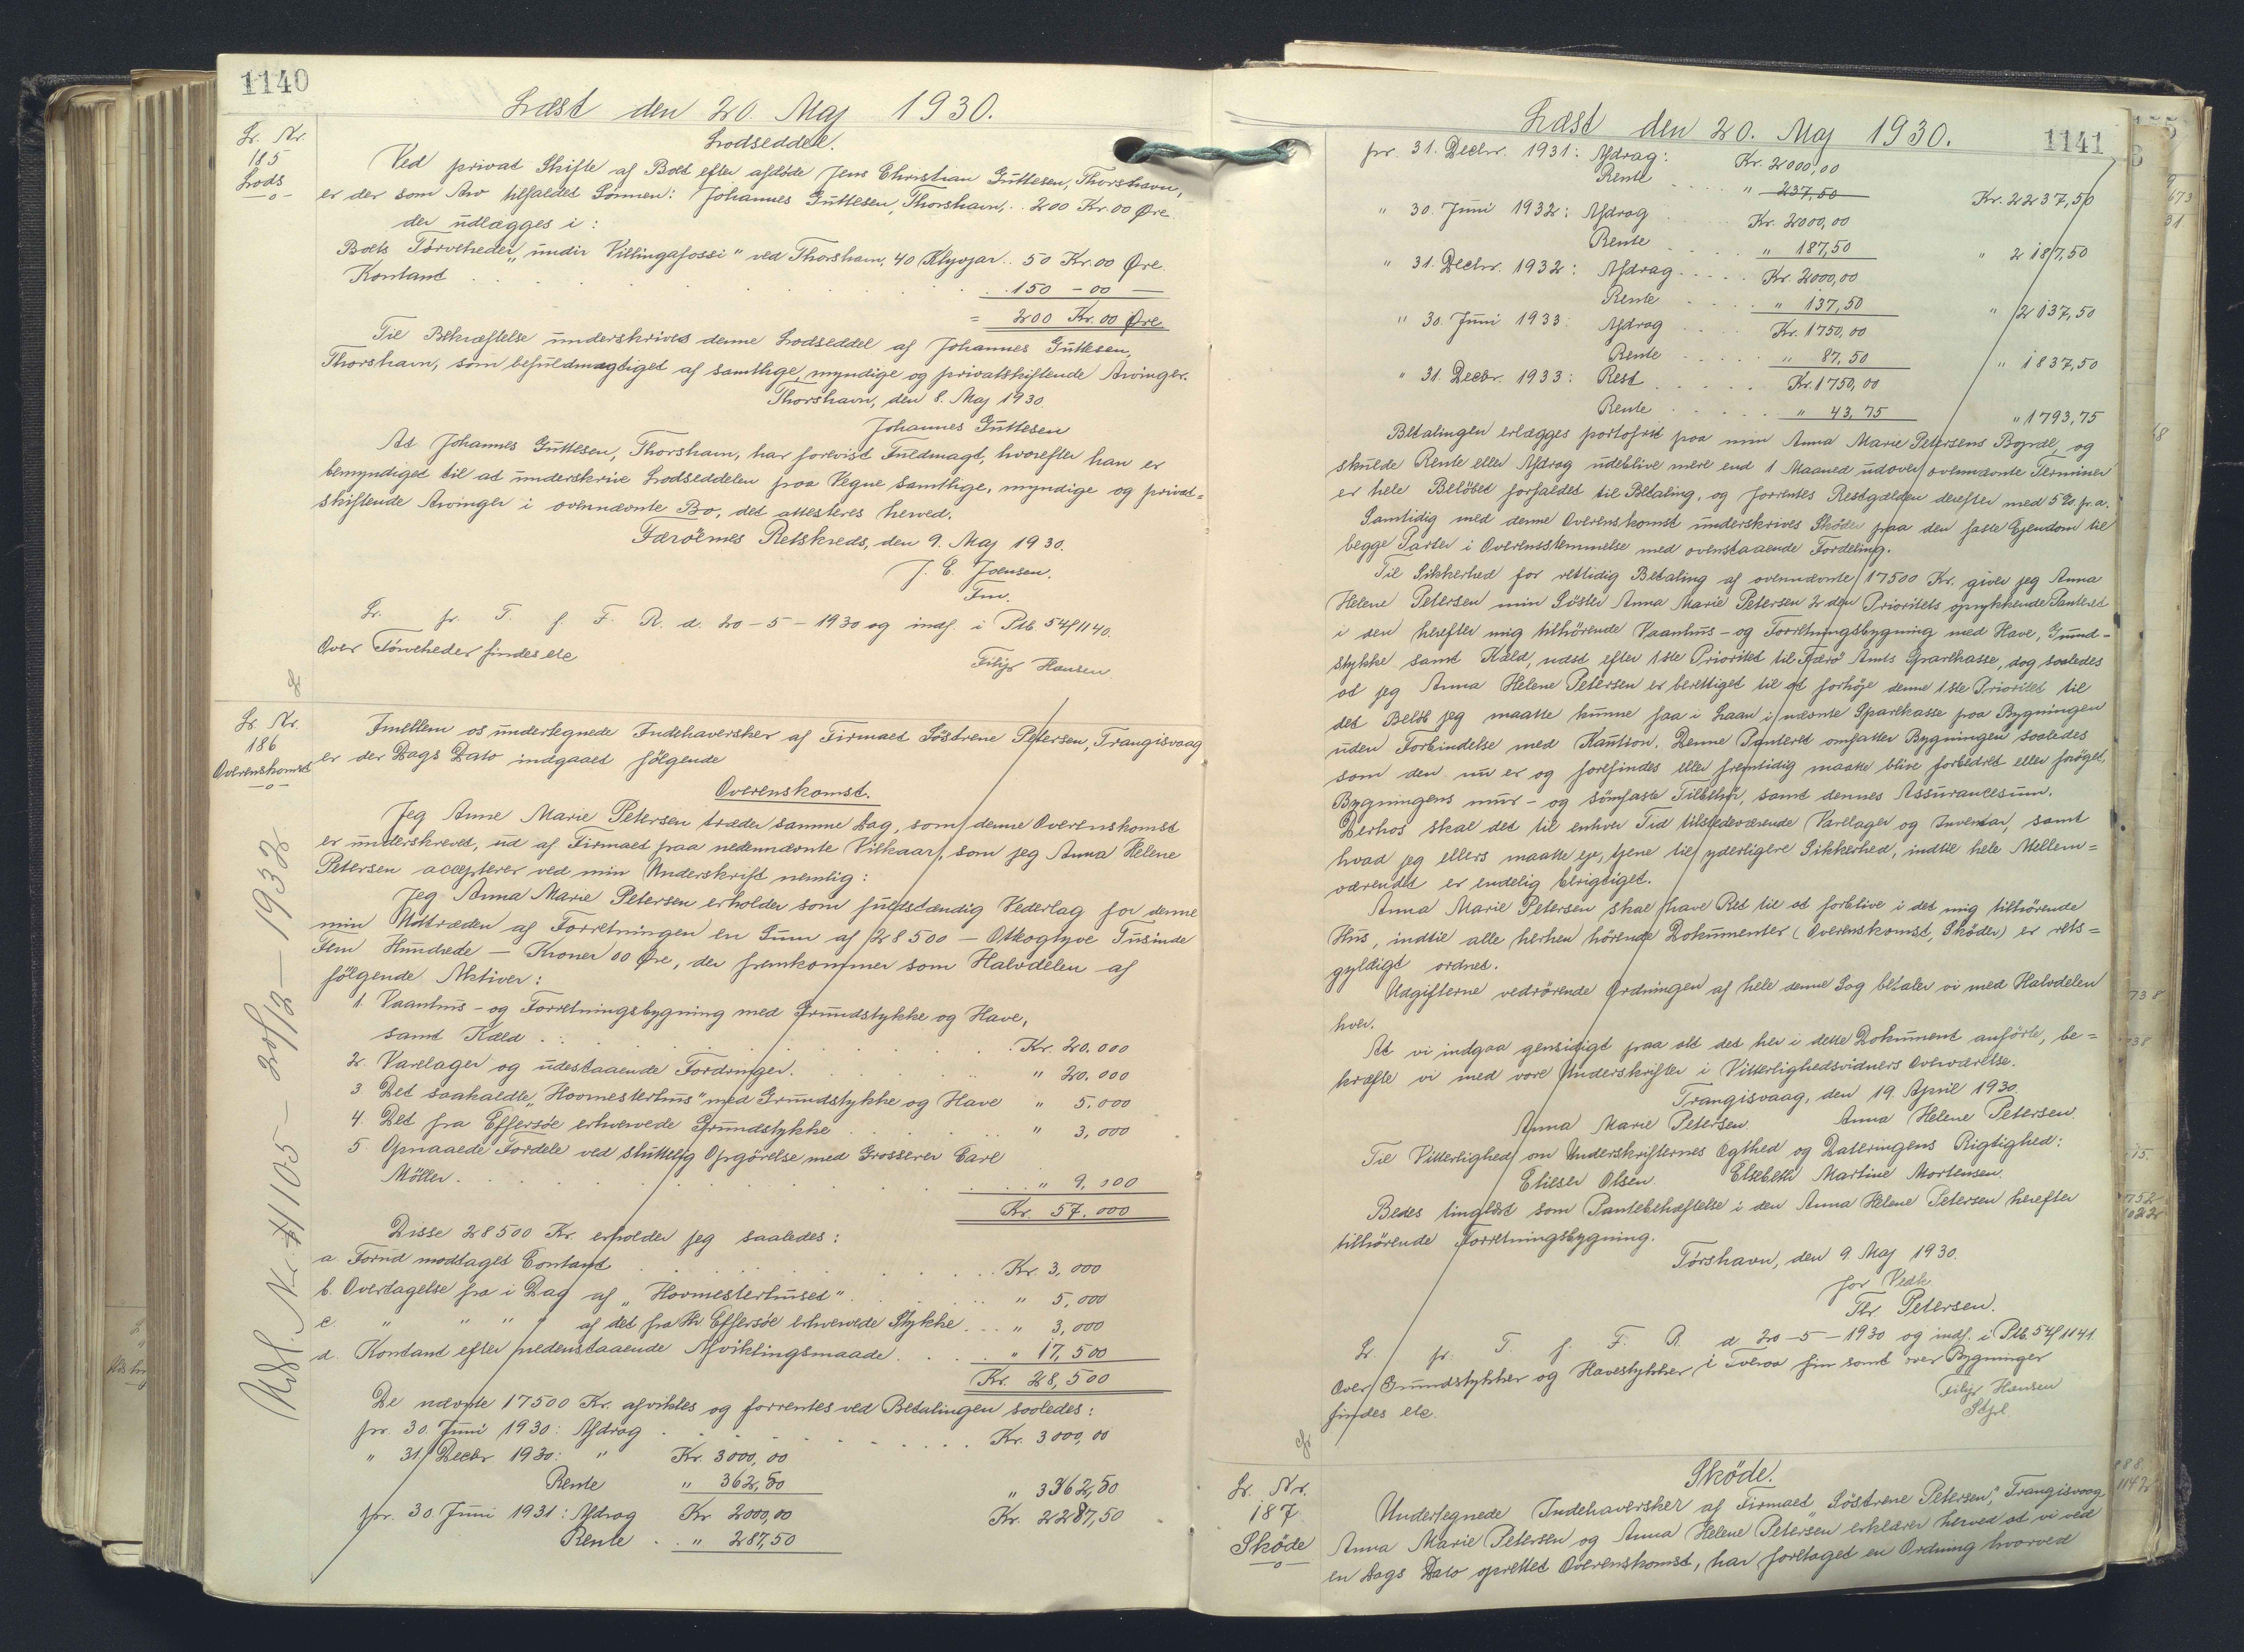 1140
Læst den 20. Maj 1930.
Lr. Nr.
185
Lods
Lodseddel.
Ved privat Skifte af Boet efter afdöde Jens Christian Guttesen, Thorshavn,
er der som Arv tilfaldet Sönnen: Johannes Guttesen, Thorshavn, . . 200 Kr. 00 Øre.
der udlægges i:
Boets Törveheder „undir Villingafossi" ved Thorshavn, 40 Klyvjar . . 50 Kr. 00 Øre.
Kontant . . . 150 - 00 —
= 200 Kr. 00 Øre.
Til Bekræftelse underskrives denne Lodseddel af Johannes Guttesen,
Thorshavn, som befuldmægtiget af samtlige, myndige og privatskiftende Arvinger.
Thorshavn, den 8. Maj 1930.
Johannes Guttesen
At Johannes Guttesen, Thorshavn, har forevist Fuldmagt, hvorefter han er
bemyndiget til at underskrive Lodseddelen paa Vegne samtlige, myndige og privat=
skiftende Arvinger i ovennævnte Bo, det attesteres herved.
Færöernes Retskreds, den 9. Maj 1930.
J. C. Joensen.
Fm.
Lr. fr. T. f. F. R. d. 20-5-1930 og indf. i Ptb. 54/1140.
Over Törveheder findes etc
Filip Hansen.
Lr. Nr.
186
Overenskomst
Imellem os undertegnede Indehaversker af Firmaet Söstrene Petersen, Trangisvaag
er der Dags Dato indgaaet fölgende
Overenskomst.
Jeg Anne Marie Petersen træder samme Dag, som denne Overenskomst
er underskrevet, ud af Firmaet paa nedennævnte Vilkaar, som jeg Anna Helene
Petersen accepterer ved min Underskrift nemlig:
Jeg Anna Marie Petersen erholder som fuldstændig Vederlag for denne
min Udtræden af Forretningen en Sum af 28500 — Otteogtyve Tusinde
Fem Hundrede — Kroner 00 Øre, der fremkommer som Halvdelen af
fölgende Aktiver:
1. Vaanhus- og Forretningsbygning med Grundstykke og Have,
samt Kæld . . . Kr. 20.000
2. Varelager og udestaaende Fordringer. . . . " 20.000
3 Det saakaldte „Hovmesterhus" med Grundstykke og Have " 5.000
4. Det fra Effersöe erhvervede Grundstykke . . . " 3,000
5. Opnaaede Fordele ved sluttelig Opgörelse med Grosserer Carl
Möller. . . . " 9,000
Kr. 57.000
Disse 28500 Kr. erholder jeg saaledes:
a. Forud modtaget Contant . . . Kr. 3,000
b. Overtagelse fra i Dag af „Hovmesterhuset" . . . " 5,000
c. " " " " af det fra Hr. Effersöe erhvervede Stykke . . . " 3,000
d. Kontant efter nedenstaaende Afviklingsmaade . . . " 17,500
Kr. 28,500
De nævnte 17500 Kr. afvikles og forrentes ved Betalingen saaledes:
pr. 30. Juni 1930: Afdrag . . . Kr. 3000,00
" 31. Decbr. 1930: " Kr. 3000,00
Rente " 362,50 " 3362,50
pr. 30. Juni 1931: Afdrag Kr 2000,00 Kr. 2287,50
Rente . . " 287,50
Udsl. Nr. 1105 - 20/12 - 1932
Læst den 20. Maj 1930.
1141
pr. 31. Decbr. 1931: Afdrag: Kr. 2000,00
Rente . . . " 237,50 Kr. 2237,50
" 30. Juni 1932: Afdrag . . . Kr. 2000,00
Rente . . . " 187,50 " 2187,50
" 31. Decbr. 1932: Afdrag . . . Kr. 2000,00
Rente . . . " 137,50 " 2137,50
" 30. Juni 1933: Afdrag . . . Kr. 1750,00
Rente . . . " 87,50 " 1837,50
" 31. Decbr. 1933: Rest . . . Kr. 1750,00
Rente . . . " 43,75 " 1793,75
Betalingen erlægges portofrit paa min Anna Marie Petersens Bopæl, og
skulde Rente eller Afdrag udeblive mere end 1 Maaned udover ovennævnte Terminer
er hele Belöbet forfaldet til Betaling, og forrentes Restgælden derefter med 5% pr. a.
Samtidig med denne Overenskomst underskrives Sköder paa den faste Ejendom til
begge Parter i Overensstemmelse med ovenstaaende Fordeling.
Til Sikkerhed for rettidig Betaling af ovennævnte 17500 Kr. giver jeg Anna
Helene Petersen min Söster Anna Marie Petersen 2den Prioritets oprykkende Panteret
i den herefter mig tilhörende Vaanhus- og Forretningsbygning med Have, Grund-
stykke samt Kæld, næst efter 1ste Prioritet til Færö Amts Sparekasse, dog saaledes
at jeg Anna Helene Petersen er berettiget til at forhöje denne 1ste Prioritet til
det Belöb jeg maatte kunne faa i Laan i nævnte Sparekasse paa Bygningen
uden Forbindelse med Kaution. Denne Panteret omfatter Bygningen saaledes
som den nu er og forefindes eller fremtidig maatte blive forbedret eller foröget,
Bygningens mur- og sömfaste Tilbehör, samt dennes Assurancesum.
Derhos skal det til enhver Tid tilstedeværende Varelager og Inventar, samt
hvad jeg ellers maatte eje, tjene til yderligere Sikkerhed, indtil hele Mellem=
værendet er endelig berigtiget.
Anna Marie Petersen skal have Ret til at forblive i det mig tilhörende
Hus, indtil alle herhen hörende Dokumenter (Overenskomst, Sköder) er rets=
gyldigt ordnet.
Udgifterne vedrörende Ordningen af hele denne Sag betaler vi med Halvdelen
hver.
At vi indgaa gensidigt paa alt det her i dette Dokument anförte, be=
kræfte vi med vore Underskrifter i Vitterlighedsvidners Overværelse.
Trangisvaag, den 19. April 1930.
Anna Marie Petersen. Anna Helene Petersen.
Til Vitterlighed om Underskrifternes Ægthed og Dateringens Rigtighed:
Elieser Olsen. Elsebeth Martine Mortensen.
Bedes tinglæst som Pantebehæftelse i den Anna Helene Petersen herefter
tilhörende Forretningsbygning.
Tórshavn, den 9. Maj 1930.
for Vedk.
Thr Petersen.
Lr. fr. T. f. F. R. d 20-5-1930 og indf. i Ptb. 54/1141.
Over Grundstykker og Havestykker i Tveraa fin samt over Bygninger
findes etc.
Filip Hansen
Stfr
Lr. Nr.
187
Sköde
Sköde.
Undertegnede Indehaversker af Firmaet „Söstrene Petersen", Trangisvaag
Anna Marie Petersen og Anna Helene Petersen erklærer herved at vi ved
en Dags Dato oprettet Overenskomst, har foretaget en Ordning hvorved